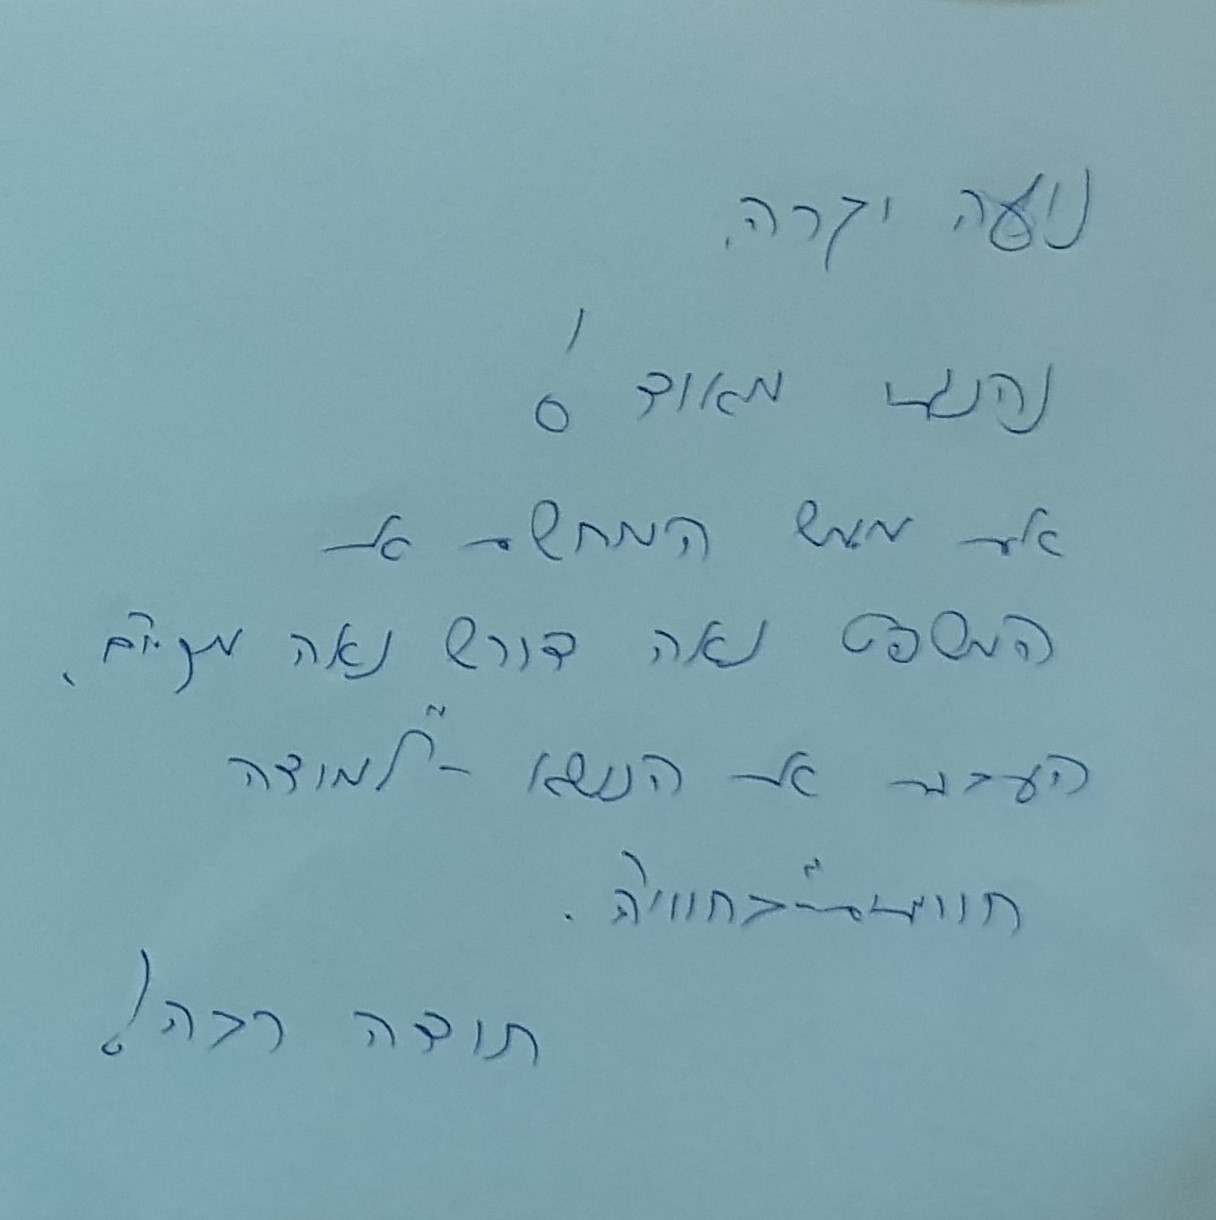 נועה יקרה,
נהנתי מאוד!
את ממש המחשת את
המשפט נאה דורש נאה מקיים.
העברת את הנושא - "למידה
חוויתית" בחוויה.
תודה רבה!